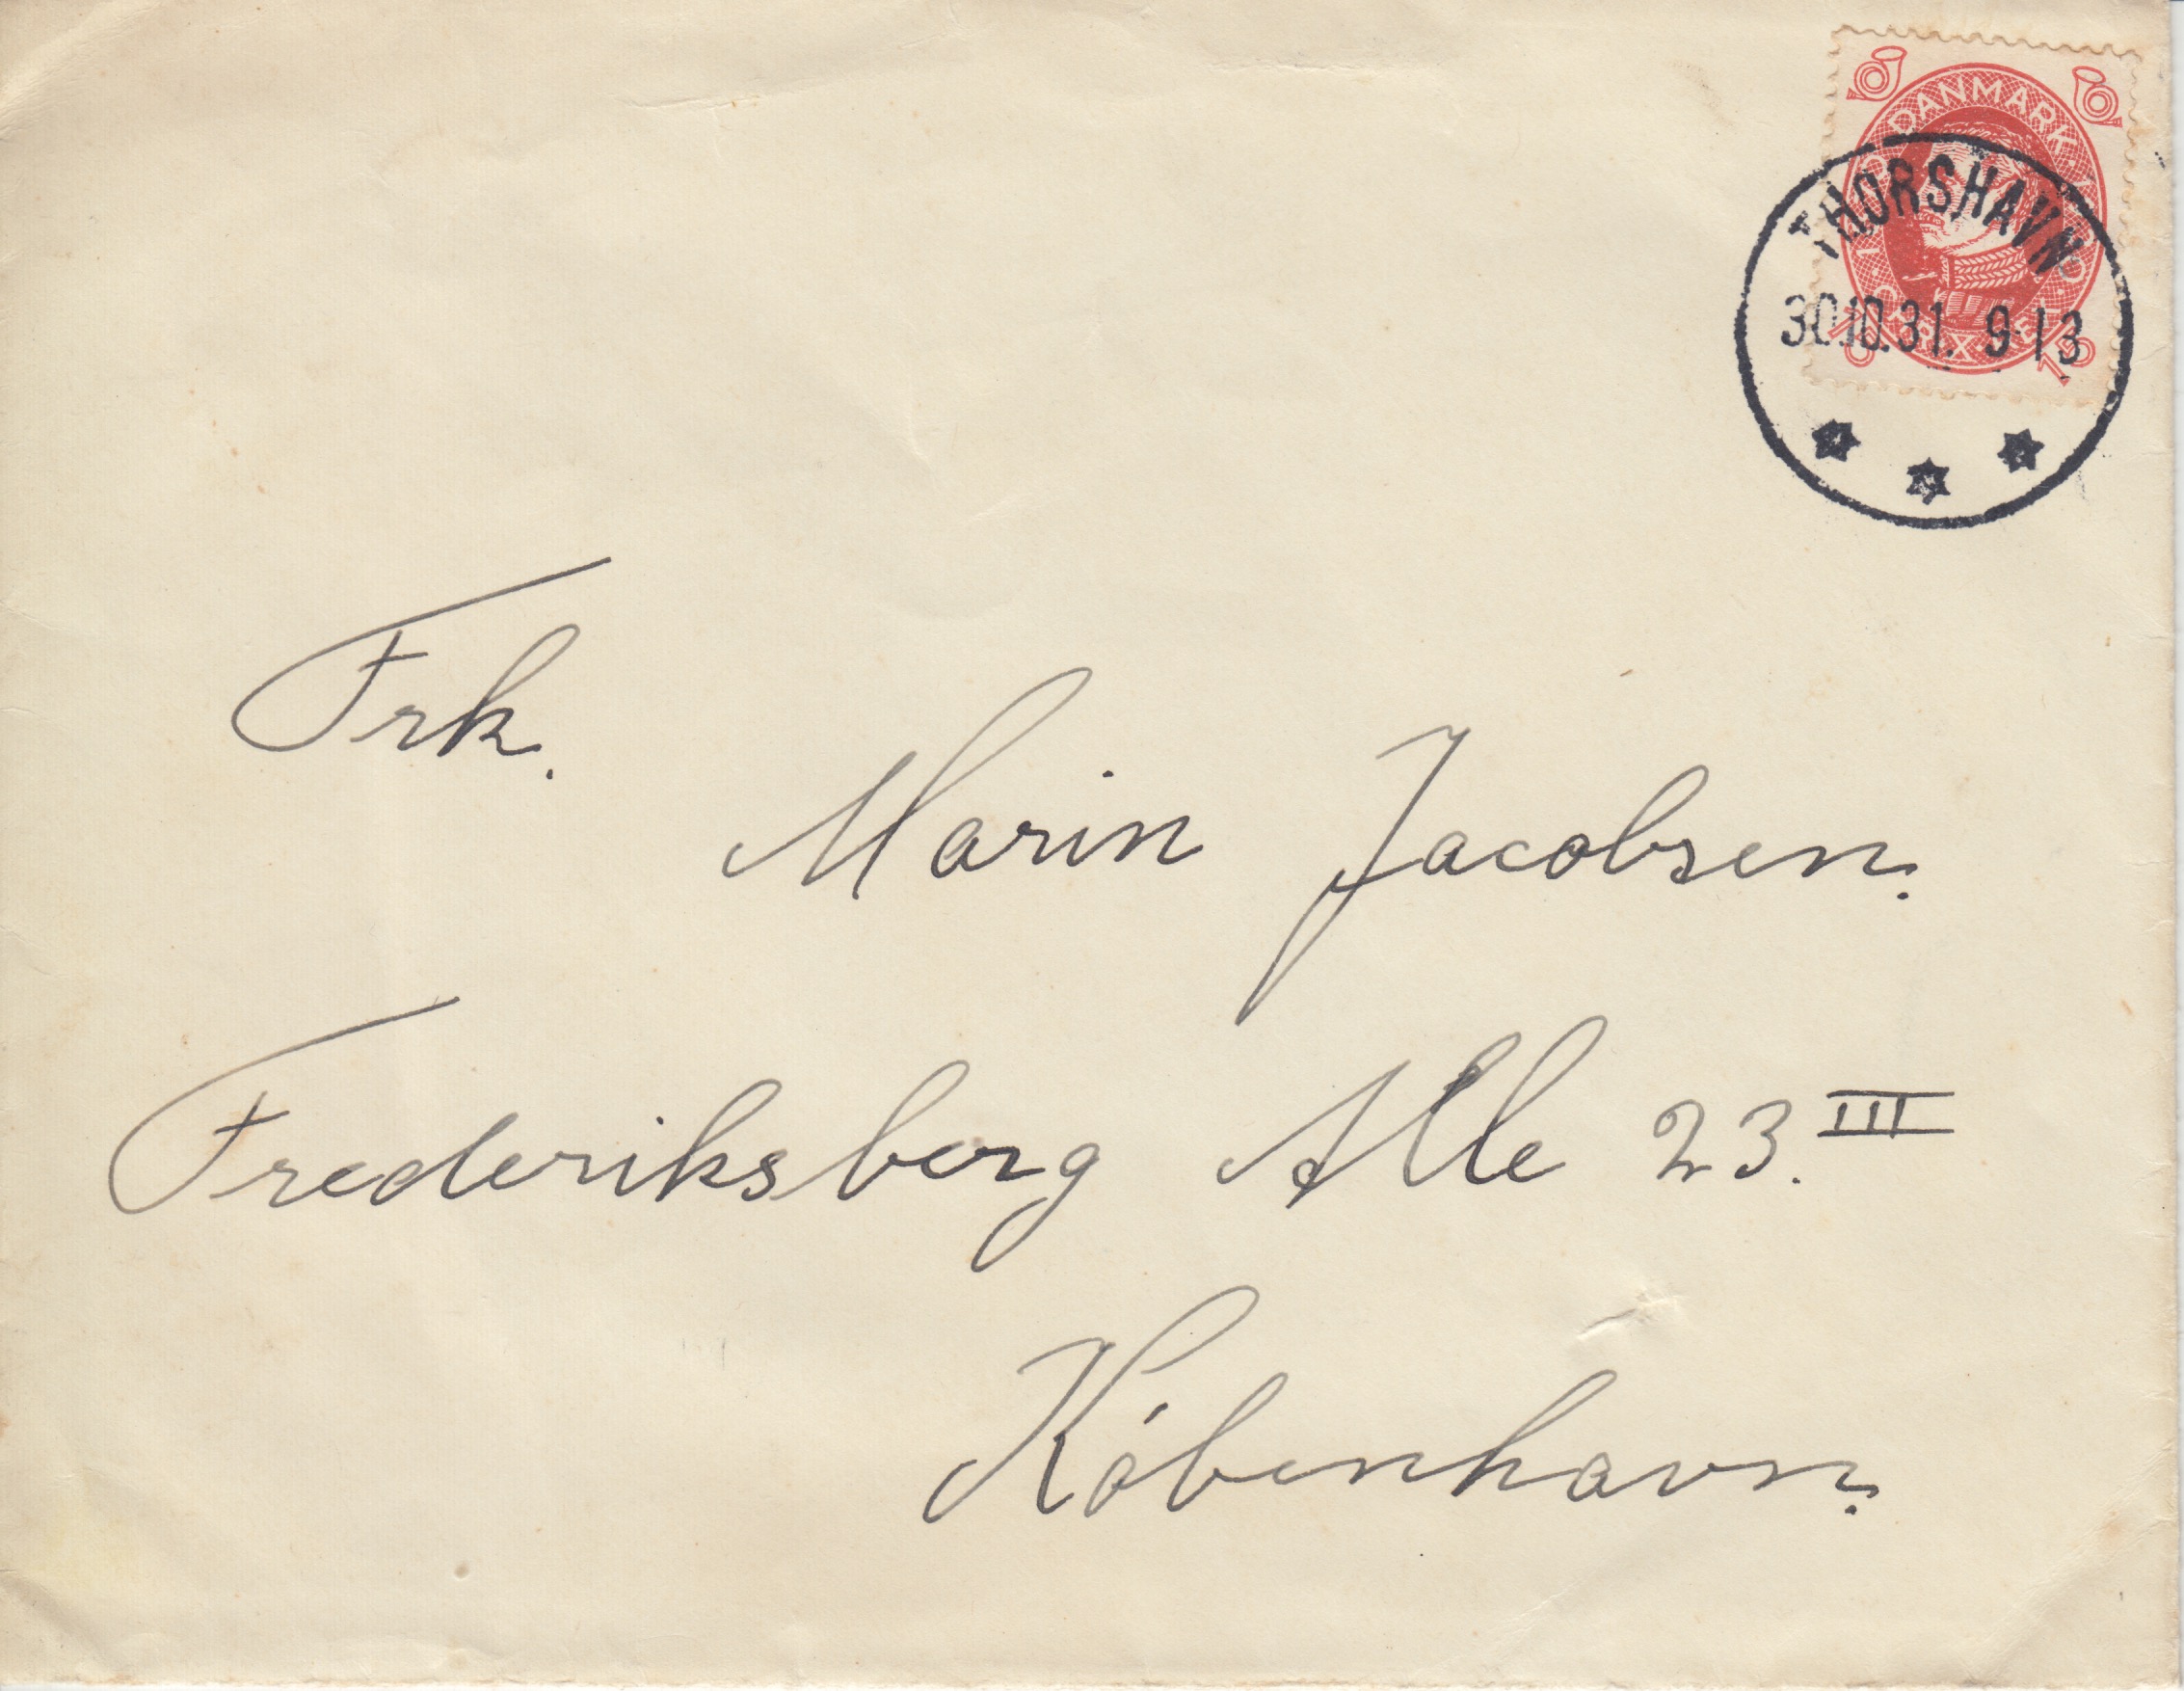 DANMARK
THORSHAVN
30.10.31. 9-13
Frk.
Marin Jacobsen.
Frederiksberg Alle 23. III
København.